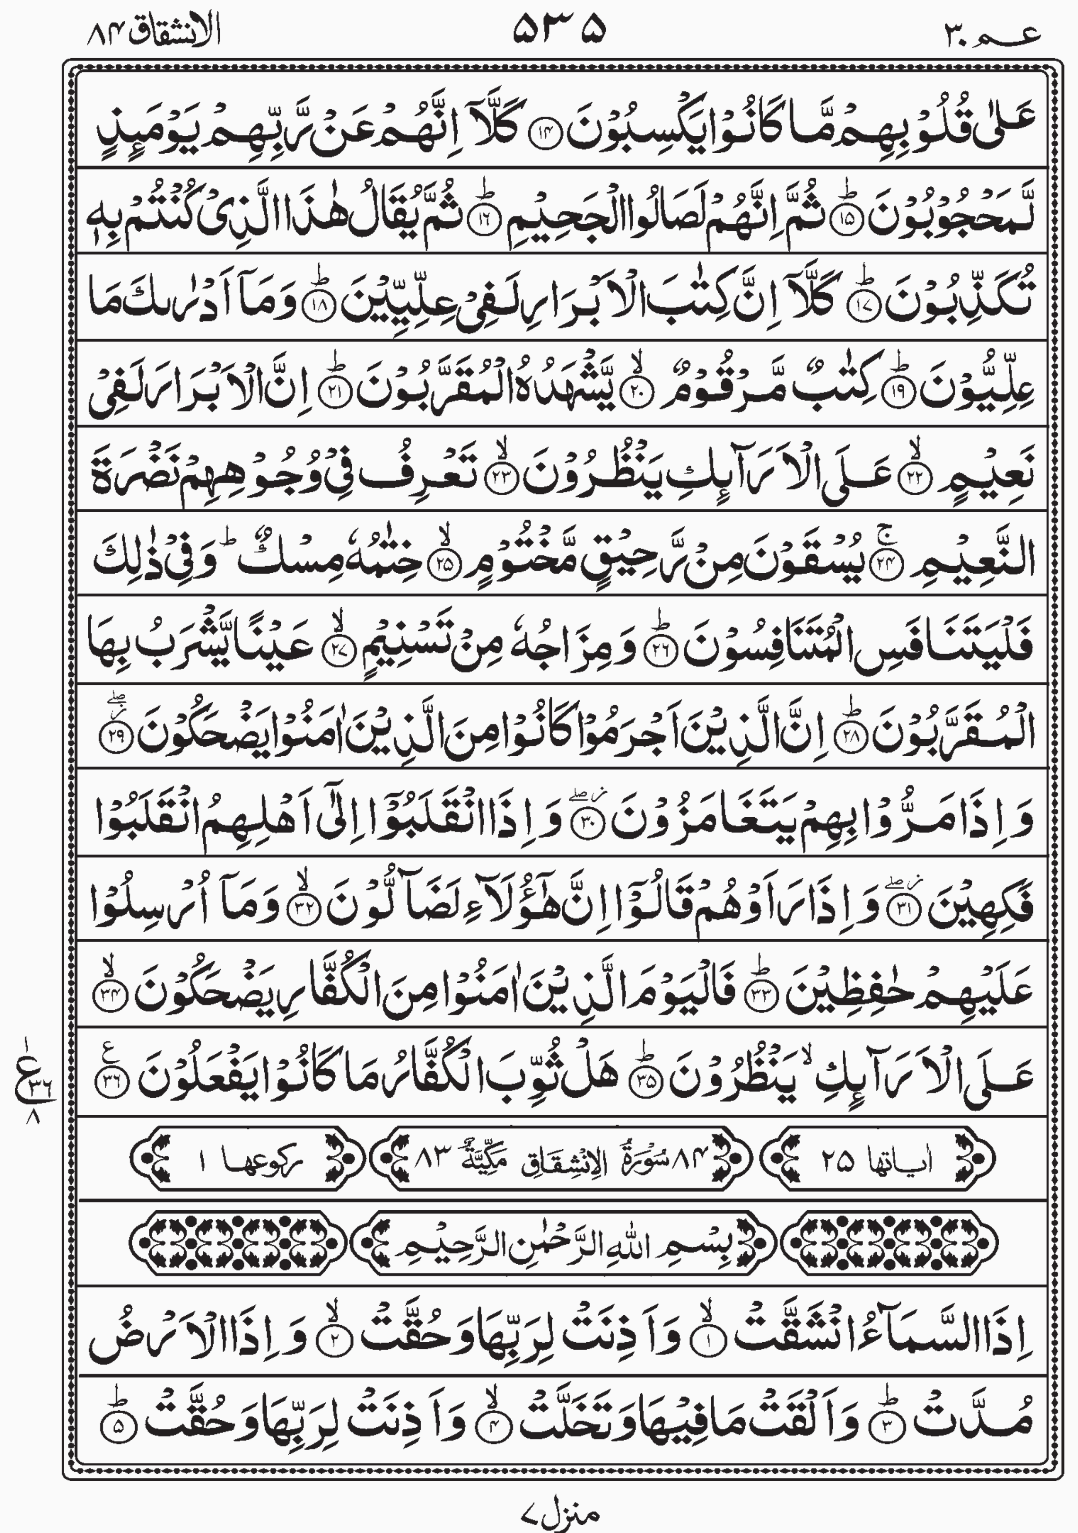 عـم ٣٠
۵۳۵
الانشقاق ۸۴
عَلٰى قُلُوْبِهِمْ مَّا كَانُوْا يَكْسِبُوْنَ ﴿۱۴﴾ كَلَّاۤ اِنَّهُمْ عَنْ رَّبِّهِمْ يَوْمَىِٕذٍ
لَّمَحْجُوْبُوْنَ ؕ﴿۱۵﴾ ثُمَّ اِنَّهُمْ لَصَالُوا الْجَحِيْمِ ؕ﴿۱۶﴾ ثُمَّ يُقَالُ هٰذَا الَّذِىْ كُنْتُمْ بِهٖ
تُكَذِّبُوْنَ ؕ﴿۱۷﴾ كَلَّاۤ اِنَّ كِتٰبَ الْاَبْرَارِ لَفِىْ عِلِّيِّيْنَ ؕ﴿۱۸﴾ وَمَاۤ اَدْرٰىكَ مَا
عِلِّيُّوْنَ ؕ﴿۱۹﴾ كِتٰبٌ مَّرْقُوْمٌ ۙ﴿۲۰﴾ يَّشْهَدُهُ الْمُقَرَّبُوْنَ ؕ﴿۲۱﴾ اِنَّ الْاَبْرَارَ لَفِىْ
نَعِيْمٍ ۙ﴿۲۲﴾ عَلَى الْاَرَآىِٕكِ يَنْظُرُوْنَ ۙ﴿۲۳﴾ تَعْرِفُ فِىْ وُجُوْهِهِمْ نَضْرَةَ
النَّعِيْمِ ۚ﴿۲۴﴾ يُسْقَوْنَ مِنْ رَّحِيْقٍ مَّخْتُوْمٍ ۙ﴿۲۵﴾ خِتٰمُهٗ مِسْكٌ ؕ وَفِىْ ذٰلِكَ
فَلْيَتَنَافَسِ الْمُتَنَافِسُوْنَ ؕ﴿۲۶﴾ وَمِزَاجُهٗ مِنْ تَسْنِيْمٍ ۙ﴿۲۷﴾ عَيْنًا يَّشْرَبُ بِهَا
الْمُقَرَّبُوْنَ ؕ﴿۲۸﴾ اِنَّ الَّذِيْنَ اَجْرَمُوْا كَانُوْا مِنَ الَّذِيْنَ اٰمَنُوْا يَضْحَكُوْنَ ۖ﴿۲۹﴾
وَاِذَا مَرُّوْا بِهِمْ يَتَغَامَزُوْنَ ۖ﴿۳۰﴾ وَاِذَا انْقَلَبُوْۤا اِلٰٓى اَهْلِهِمُ انْقَلَبُوْا
فَكِهِيْنَ ۖ﴿۳۱﴾ وَاِذَا رَاَوْهُمْ قَالُوْۤا اِنَّ هٰۤؤُلَآءِ لَضَآلُّوْنَ ۙ﴿۳۲﴾ وَمَاۤ اُرْسِلُوْا
عَلَيْهِمْ حٰفِظِيْنَ ؕ﴿۳۳﴾ فَالْيَوْمَ الَّذِيْنَ اٰمَنُوْا مِنَ الْكُفَّارِ يَضْحَكُوْنَ ۙ﴿۳۴﴾
عَلَى الْاَرَآىِٕكِ ۙ يَنْظُرُوْنَ ؕ﴿۳۵﴾ هَلْ ثُوِّبَ الْكُفَّارُ مَا كَانُوْا يَفْعَلُوْنَ ﴿۳۶﴾ ع
۱ ع ۳۶ ۸
اٰياتها ۲۵
۸۴ سُوْرَةُ الْاِنْشِقَاقِ مَكِّيَّةٌ ۸۳
ركوعها ۱
بِسْمِ اللّٰهِ الرَّحْمٰنِ الرَّحِيْمِ
اِذَا السَّمَآءُ انْشَقَّتْ ۙ﴿۱﴾ وَاَذِنَتْ لِرَبِّهَا وَحُقَّتْ ۙ﴿۲﴾ وَاِذَا الْاَرْضُ
مُدَّتْ ؕ﴿۳﴾ وَاَلْقَتْ مَا فِيْهَا وَتَخَلَّتْ ۙ﴿۴﴾ وَاَذِنَتْ لِرَبِّهَا وَحُقَّتْ ؕ﴿۵﴾
منزل ۷